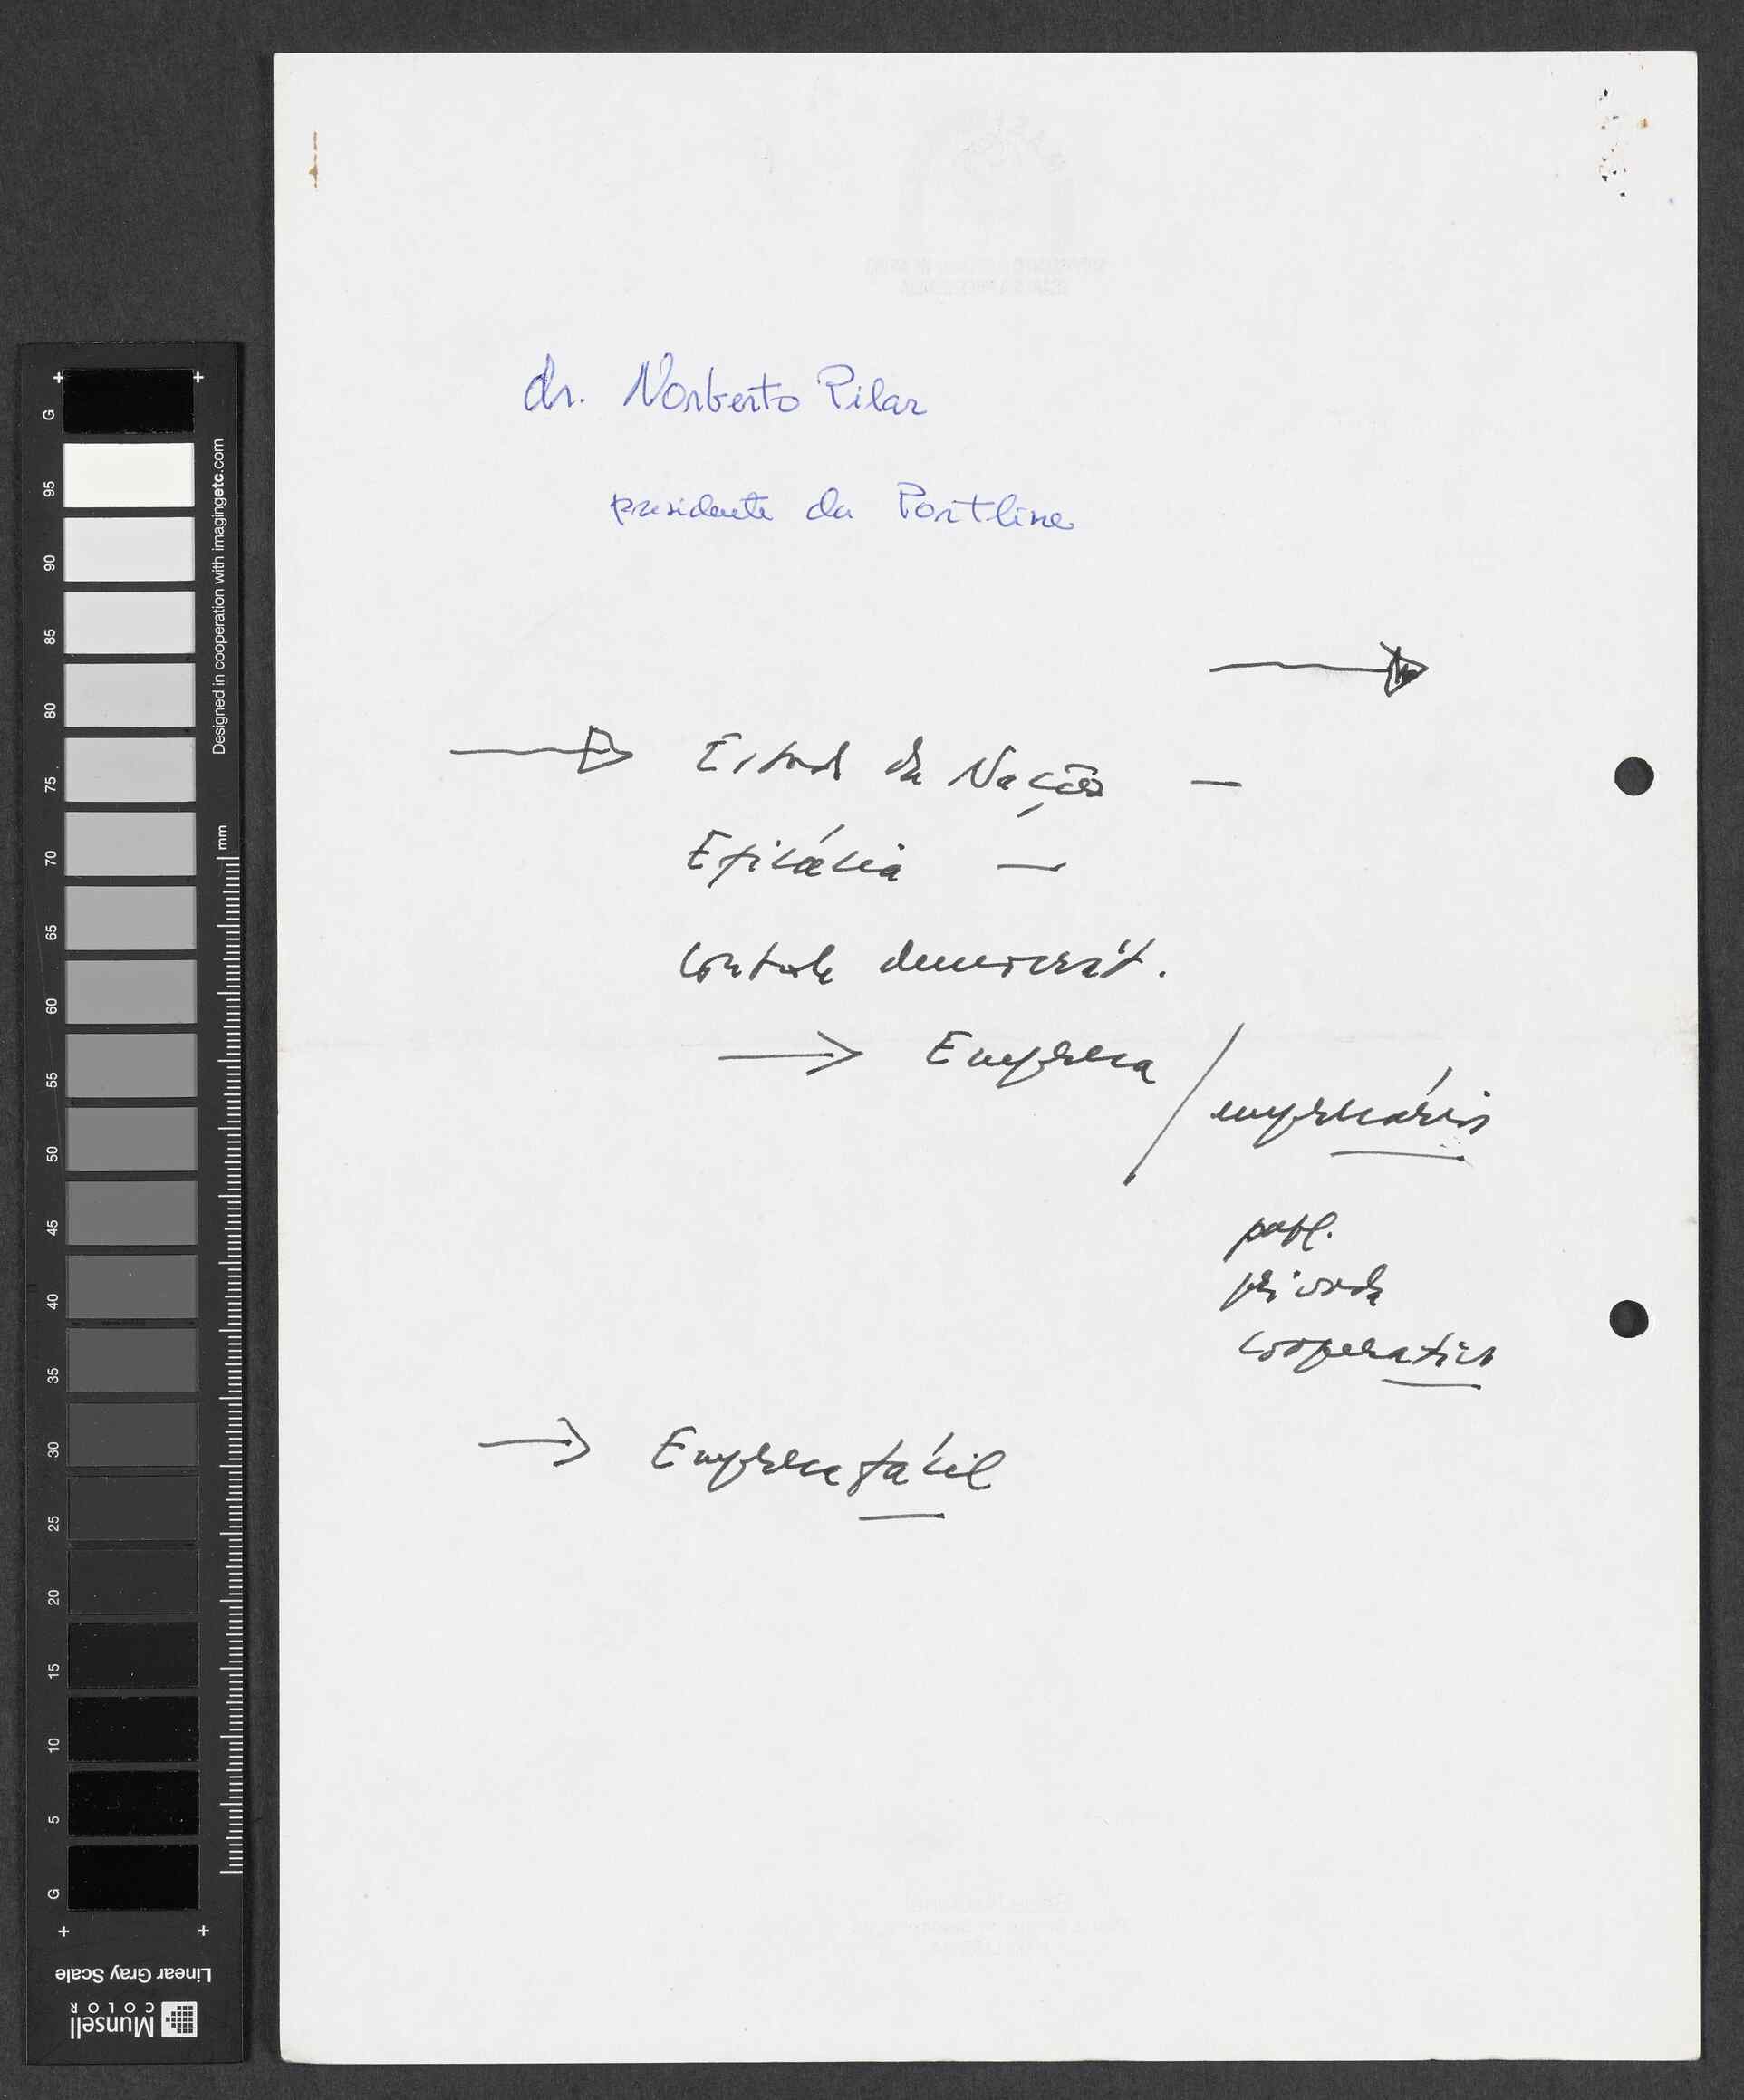 dr. Norberto Pilar
presidente da Portline
→
→ Estado da Nação —
Eficácia —
Controle democrát.
→ Empresa /
empresário
privada
cooperativa
→ Empresa fácil
Designed in cooperation with imagingetc.com
mm
G
95
90
85
80
75
70
65
60
55
50
45
40
35
30
25
20
15
10
5
G
Linear Gray Scale
Munsell
COLOR